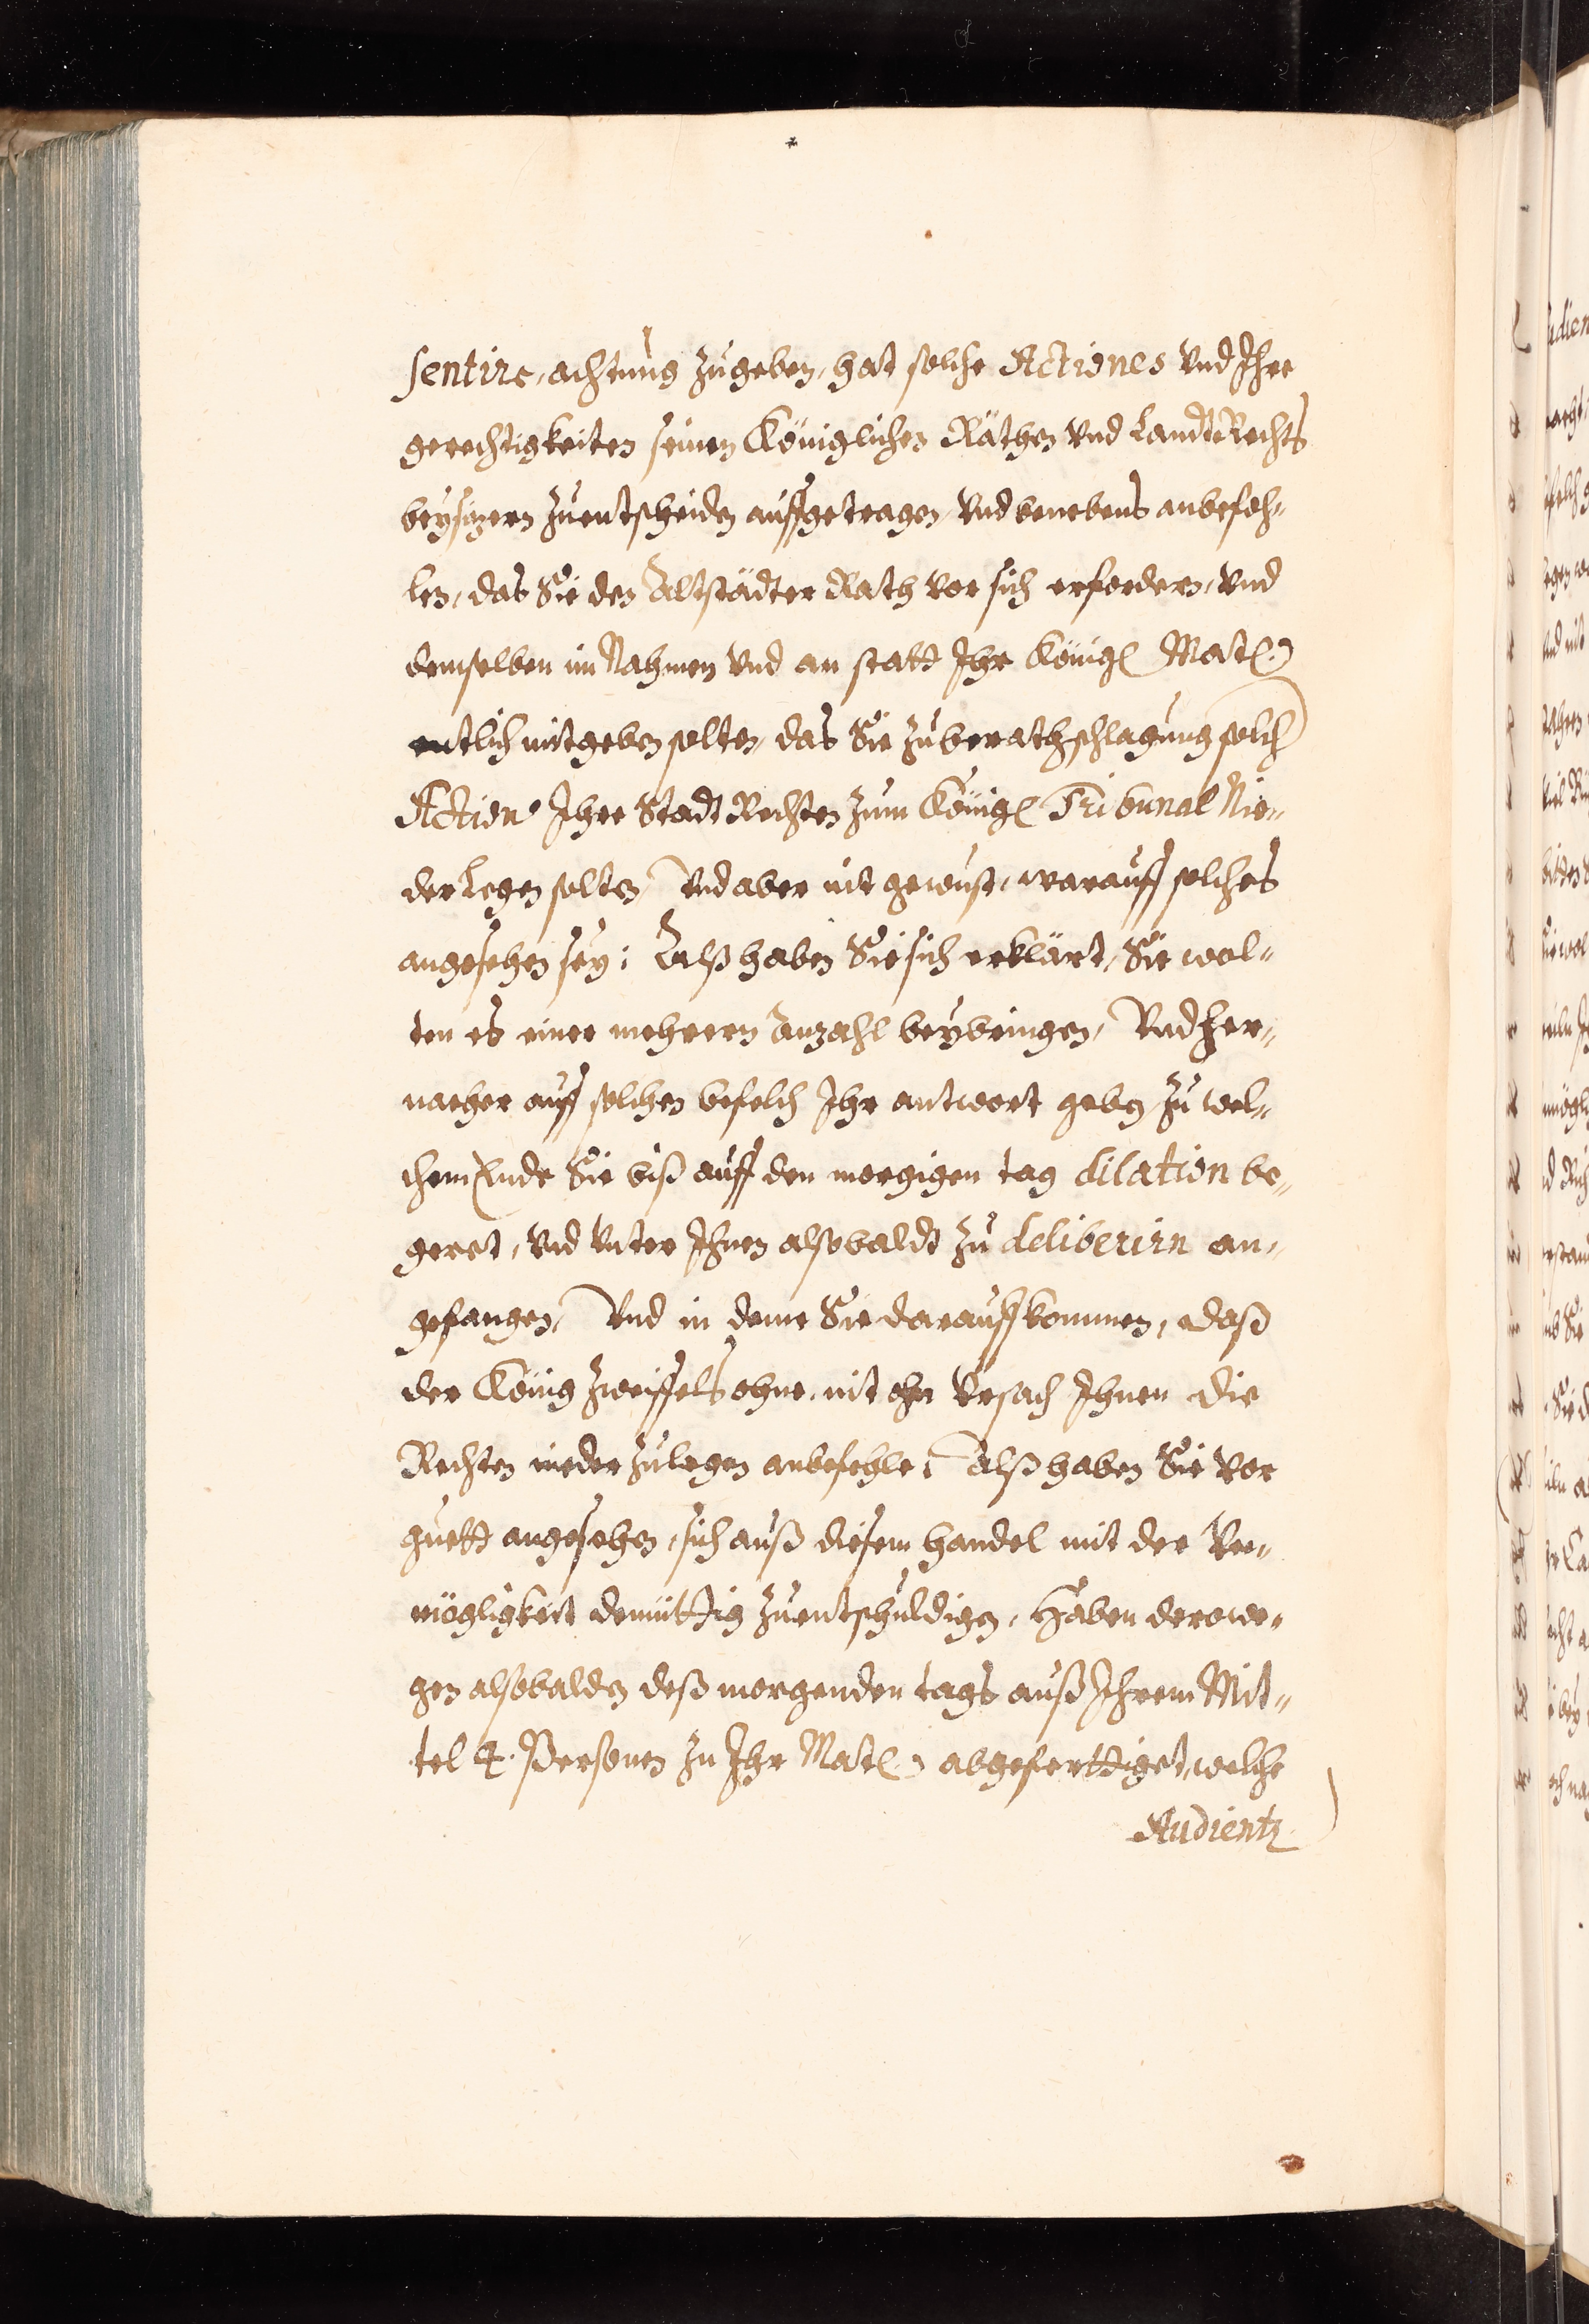 sentirc, achtung zugeben, hat solche Actiones vnd Ihre
gerechtigkeiten seinen Königlichen Räthen vnd LandtRechts
beysizern zuentscheiden auffgetragen, vnd benebens anbefoh„
len, das Sie den Altstädter Rath vor sich erfordern, vnd
demselben im Nahmen vnd an statt Ihr Königl Matl:
entlich mitgeben solten, das Sie zu berathschlagung solch
Action Ihre Stadt Rechten zum Königl Tribunal Nie„
der Legen solten, Vnd aber nit gewust, warauff solches
angesehen sey; Alß haben Sie sich erklärt, Sie wol„
ten es einer mehrern Anzahl beybringen, Vnd her„
nacher auff solchen befelch Ihr antwort geben, zu wel„
chem Ende Sie biß auff den morgigen tag dilation be„
gert, vnd vnter Ihnen alsobaldt zu deliberirn an„
gefangen, Vnd in deme Sie darauff kommen, daß
der König zweiffels ohne, nit ohn Vrsach Ihnen die
Rechten nieder zulegen anbefehle; Alß haben Sie vor
guett angesehen, sich auß diesem handel mit der Vn„
mögligkeit demüttig zuentschuldigen, Haben derowe„
gen alsobalden deß morgenden tags auß Ihrem Mit„
tel 4. Personen zu Ihr Matl: abgeferttiget, welche
Audientz